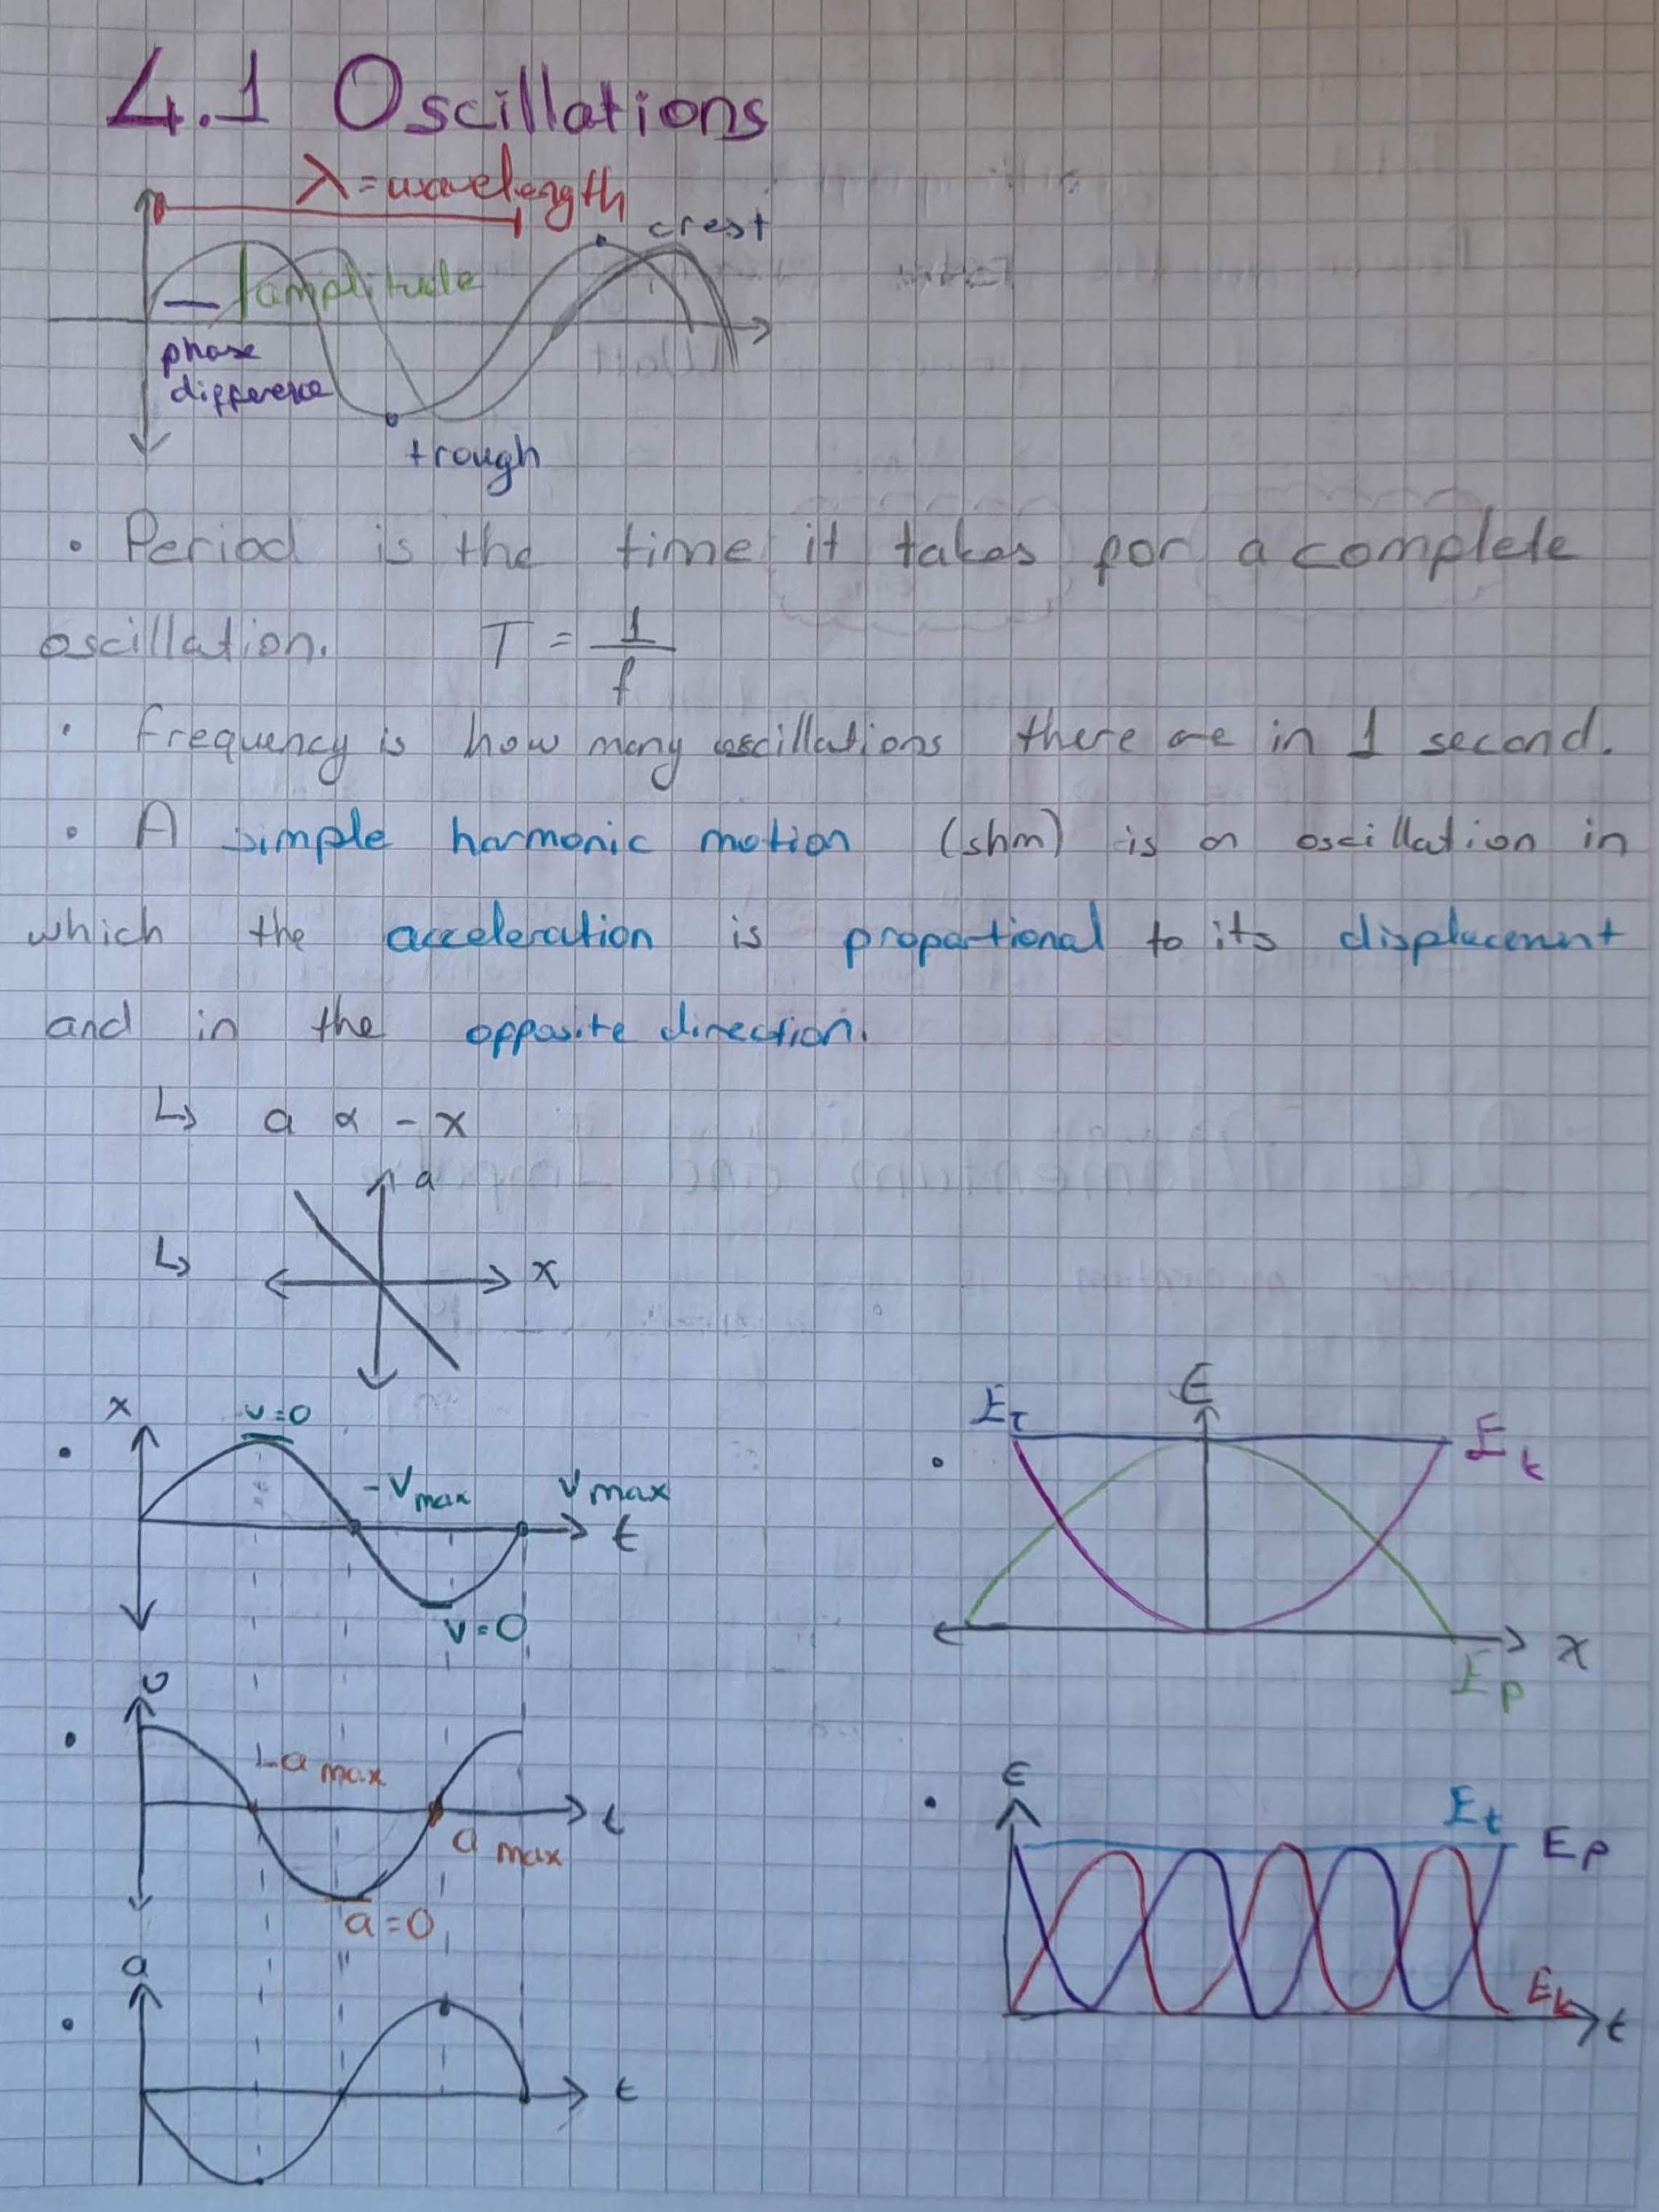 4.1 Oscillations
λ = wavelength
crest
amplitude
phase
difference
trough
• Period is the time it takes for a complete
oscillation. T = 1/f
• frequency is how many oscillations there are in 1 second.
• A simple harmonic motion (shm) is an oscillation in
which the acceleration is proportional to its displacement
and in the opposite direction.
↳ a α - x
a
↳ x
x
v=0
-Vmax Vmax
t
v=0
E
ET Ek
x
Ep
v
-a max
t
a max
a=0
E
Et
Ep
Ek
t
a
t